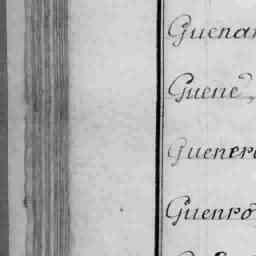 Guenar
Guene,
Guenere
Guenro